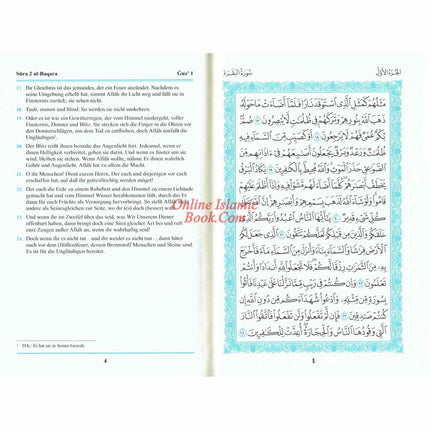 Sūra 2 al-Baqara
Ǧuz' 1
17. Ihr Gleichnis ist das jemandes, der ein Feuer anzündet. Nachdem es
seine Umgebung erhellt hat, nimmt Allāh ihr Licht weg und läßt sie in
Finsternis zurück; sie sehen nicht.
18. Taub, stumm und blind: So werden sie nicht umkehren.
19. Oder es ist wie ein Gewitterregen, der vom Himmel niedergeht, voller
Finsternis, Donner und Blitz. Sie stecken sich die Finger in die Ohren vor
den Donnerschlägen, um dem Tod zu entfliehen, doch Allāh umfaßt die
Ungläubigen¹.
20. Der Blitz reißt ihnen beinahe das Augenlicht fort. Jedesmal, wenn er
ihnen Helligkeit verbreitet, gehen sie darin. Und wenn es finster um sie
wird, bleiben sie stehen. Wenn Allāh wollte, nähme Er ihnen wahrlich
Gehör und Augenlicht. Allāh hat zu allem die Macht.
21. O ihr Menschen! Dient eurem Herrn, Der euch und diejenigen vor euch
erschaffen hat, auf daß ihr gottesfürchtig werden möget!
22. Der euch die Erde zu einem Ruhebett und den Himmel zu einem Gebäude
gemacht hat und vom Himmel Wasser herabkommen läßt, durch das Er
dann für euch Früchte als Versorgung hervorbringt. So stellt Allāh nicht
andere als Seinesgleichen zur Seite, wo ihr (es) doch (besser) wißt.
23. Und wenn ihr im Zweifel über das seid, was Wir Unserem Diener
offenbart haben, dann bringt doch eine Sūra gleicher Art bei und ruft
eure Zeugen außer Allāh an, wenn ihr wahrhaftig seid!
24. Doch wenn ihr es nicht tut - und ihr werdet es nicht tun - , dann hütet
euch vor dem (Höllen)feuer, dessen Brennstoff Menschen und Steine sind.
Es ist für die Ungläubigen bereitet.
¹ D.h.: Er hat sie in Seiner Gewalt.
4
Online Islamic
Book.Com
سُورَةُ البَقَرَة
الجُزءُ الأَوَّلُ
مَثَلُهُمْ كَمَثَلِ ٱلَّذِى ٱسْتَوْقَدَ نَارًا فَلَمَّآ أَضَآءَتْ مَا حَوْلَهُۥ
ذَهَبَ ٱللَّهُ بِنُورِهِمْ وَتَرَكَهُمْ فِى ظُلُمَٰتٍ لَّا يُبْصِرُونَ ١٧ صُمٌّ
بُكْمٌ عُمْىٌ فَهُمْ لَا يَرْجِعُونَ ١٨ أَوْ كَصَيِّبٍ مِّنَ ٱلسَّمَآءِ فِيهِ
ظُلُمَٰتٌ وَرَعْدٌ وَبَرْقٌ يَجْعَلُونَ أَصَٰبِعَهُمْ فِىٓ ءَاذَانِهِم مِّنَ
ٱلصَّوَٰعِقِ حَذَرَ ٱلْمَوْتِ وَٱللَّهُ مُحِيطٌۢ بِٱلْكَٰفِرِينَ ١٩ يَكَادُ ٱلْبَرْقُ
يَخْطَفُ أَبْصَٰرَهُمْ كُلَّمَآ أَضَآءَ لَهُم مَّشَوْا۟ فِيهِ وَإِذَآ أَظْلَمَ عَلَيْهِمْ
قَامُوا۟ وَلَوْ شَآءَ ٱللَّهُ لَذَهَبَ بِسَمْعِهِمْ وَأَبْصَٰرِهِمْ إِنَّ ٱللَّهَ عَلَىٰ
كُلِّ شَىْءٍ قَدِيرٌ ٢٠ يَٰٓأَيُّهَا ٱلنَّاسُ ٱعْبُدُوا۟ رَبَّكُمُ ٱلَّذِى
خَلَقَكُمْ وَٱلَّذِينَ مِن قَبْلِكُمْ لَعَلَّكُمْ تَتَّقُونَ ٢١ ٱلَّذِى جَعَلَ لَكُمُ
ٱلْأَرْضَ فِرَٰشًا وَٱلسَّمَآءَ بِنَآءً وَأَنزَلَ مِنَ ٱلسَّمَآءِ مَآءً فَأَخْرَجَ
بِهِۦ مِنَ ٱلثَّمَرَٰتِ رِزْقًا لَّكُمْ فَلَا تَجْعَلُوا۟ لِلَّهِ أَندَادًا وَأَنتُمْ
تَعْلَمُونَ ٢٢ وَإِن كُنتُمْ فِى رَيْبٍ مِّمَّا نَزَّلْنَا عَلَىٰ عَبْدِنَا فَأْتُوا۟
بِسُورَةٍ مِّن مِّثْلِهِۦ وَٱدْعُوا۟ شُهَدَآءَكُم مِّن دُونِ ٱللَّهِ إِن
كُنتُمْ صَٰدِقِينَ ٢٣ فَإِن لَّمْ تَفْعَلُوا۟ وَلَن تَفْعَلُوا۟ فَٱتَّقُوا۟ ٱلنَّارَ
ٱلَّتِى وَقُودُهَا ٱلنَّاسُ وَٱلْحِجَارَةُ أُعِدَّتْ لِلْكَٰفِرِينَ ٢٤
٤